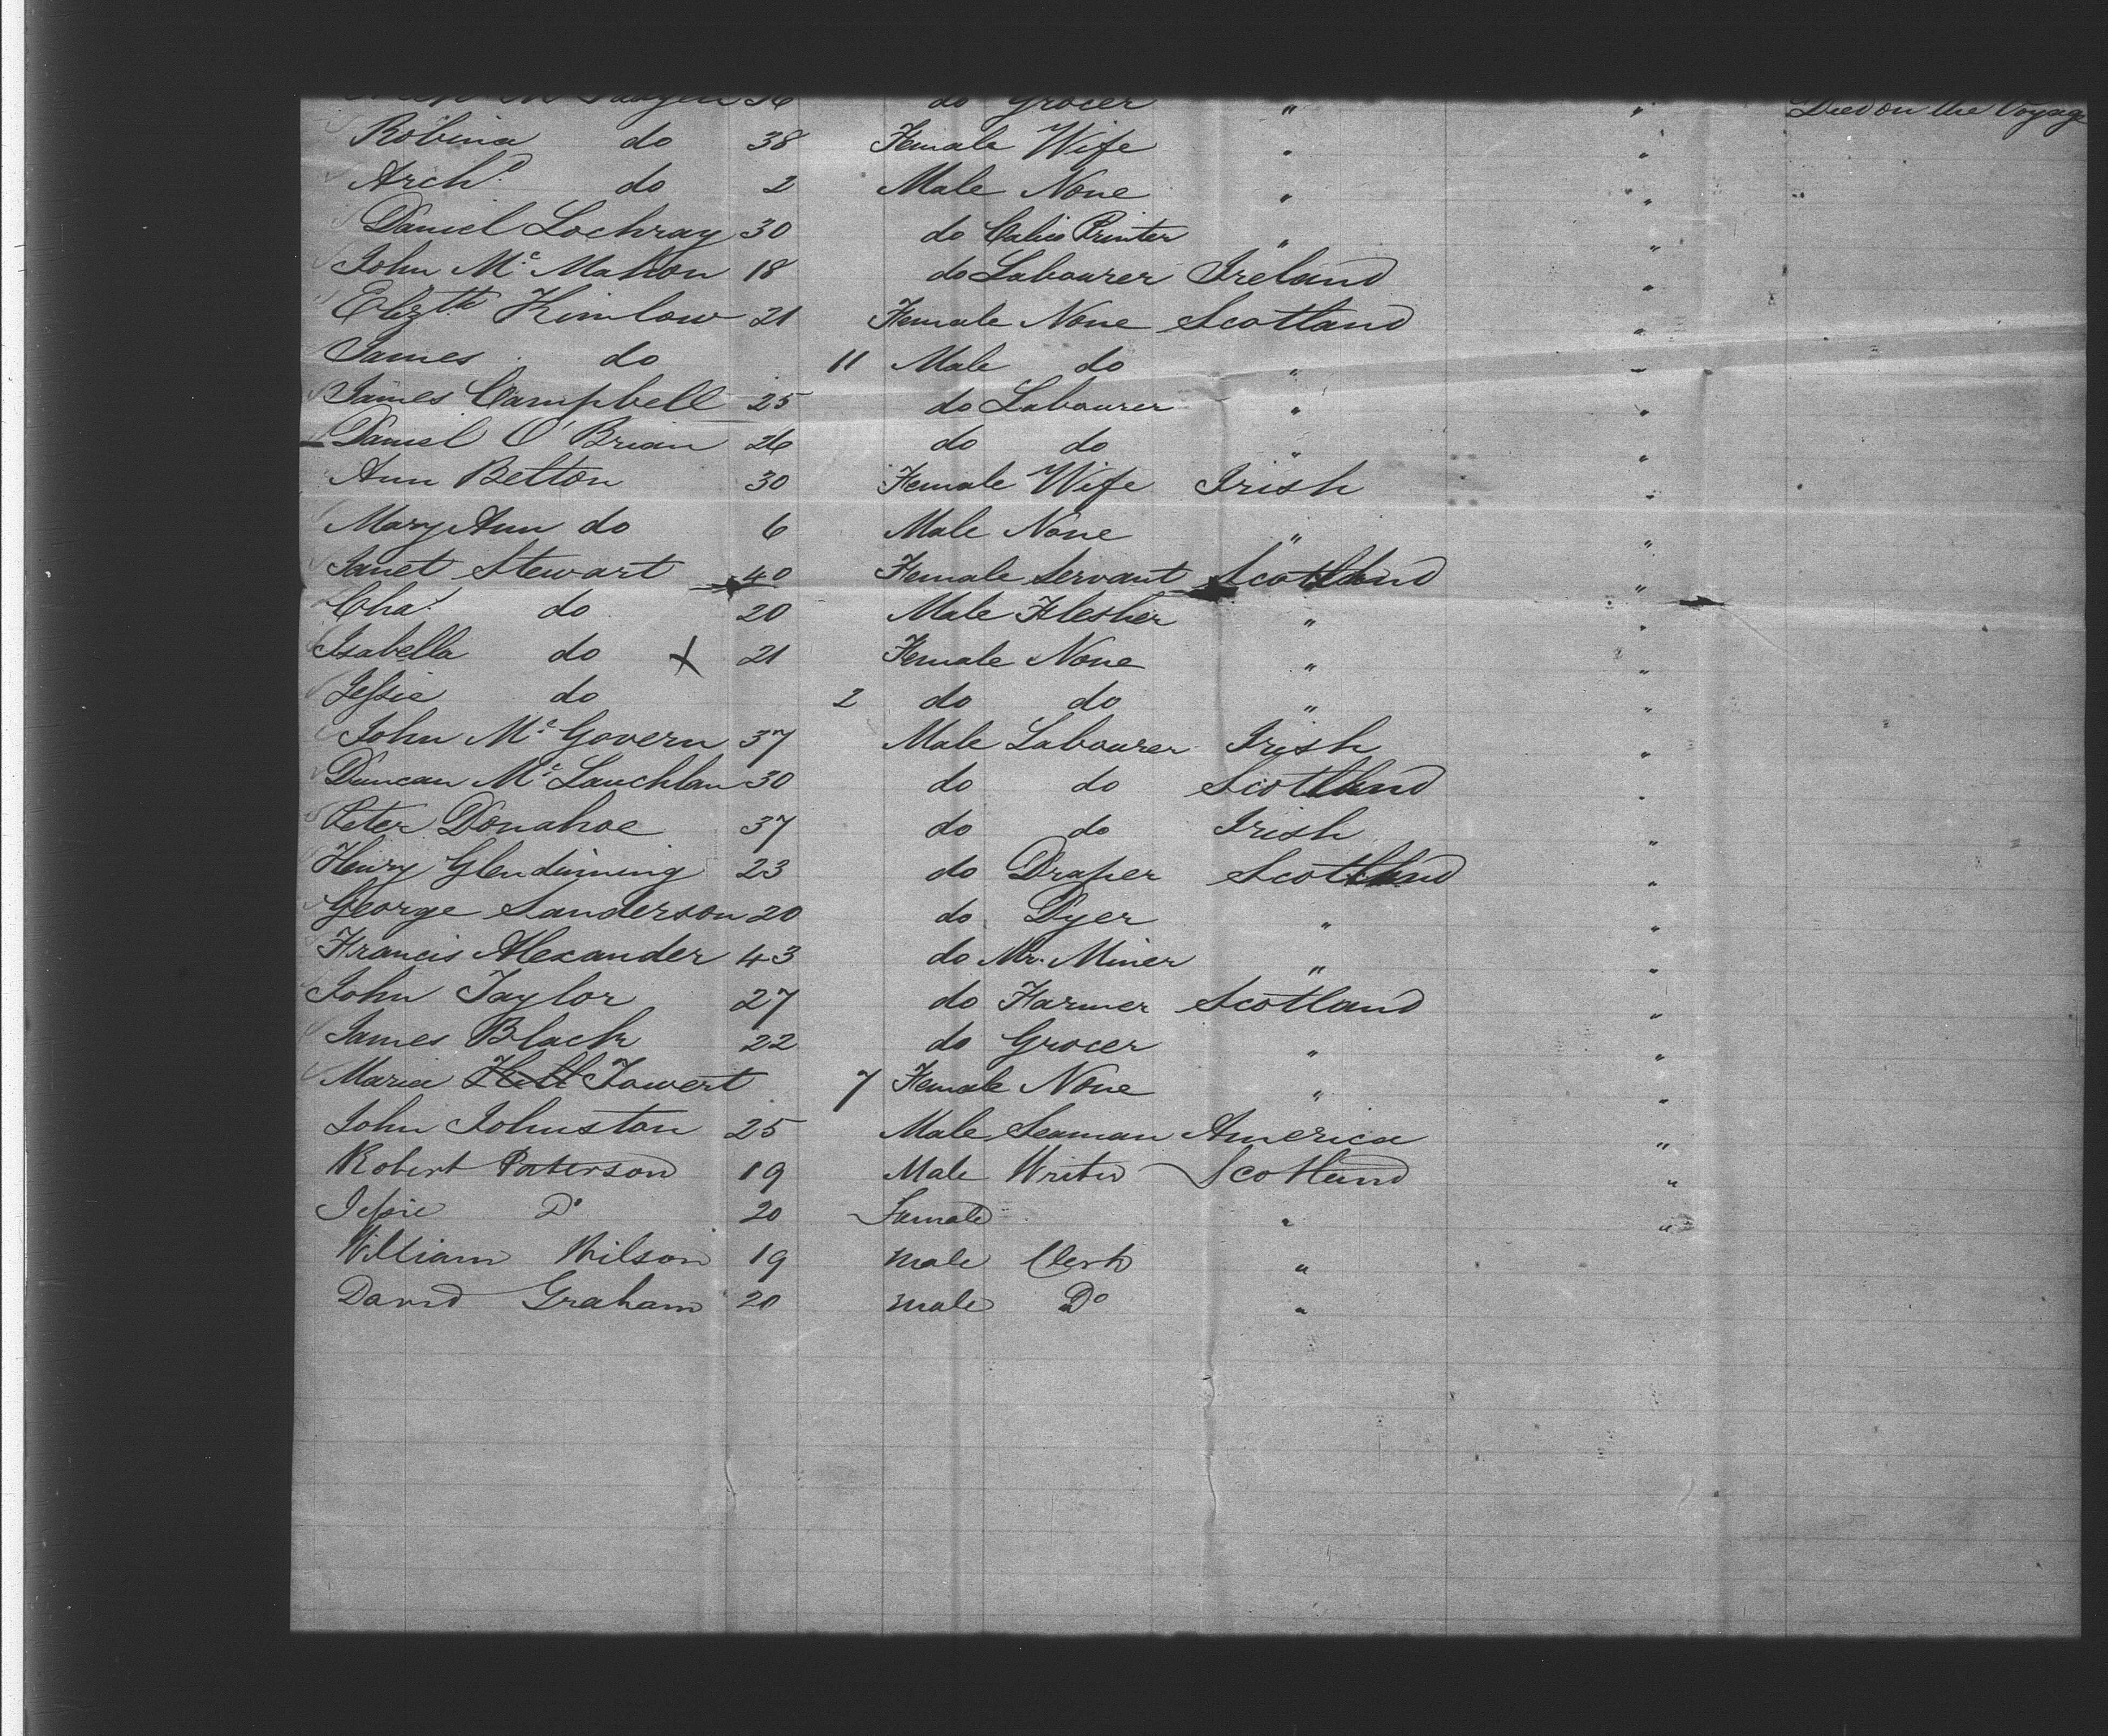 36 do Grocer " " Died on the Voyage
Robina do 38 Female Wife " "
Archd do 2 Male None " "
Daniel Lochray 30 do Calico Printer " "
John Mc Mahon 18 do Labourer Ireland "
Elizth Kinlow 21 Female None Scotland "
James do 11 Male do " "
James Campbell 25 do Labourer " "
Daniel O'Brian 26 do do " "
Ann Betton 30 Female Wife Irish "
Mary Ann do 6 Male None " "
Janet Stewart 40 Female Servant Scotland "
Chas do 20 Male Flesher " "
Isabella do x 21 Female None " "
Jessie do 2 do do " "
John Mc Govern 37 Male Labourer Irish "
Duncan Mc Lauchlan 30 do do Scotland "
Peter Donahoe 37 do do Irish "
Henry Glendinning 23 do Draper Scotland "
George Sanderson 20 do Dyer " "
Francis Alexander 43 do Miner " "
John Taylor 27 do Farmer Scotland "
James Black 22 do Grocer " "
Maria Hill Towert 7 Female None " "
John Johnston 25 Male Seaman America "
Robert Paterson 19 Male Writer Scotland "
Jessie Do 20 Female " "
William Wilson 19 male Clerk "
David Graham 20 male Do "